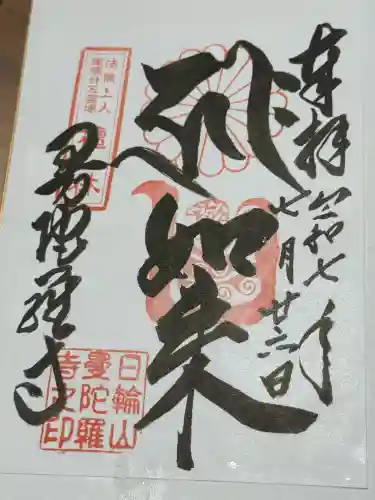 奉拝
令和七年
七月廿六日
如来
曼陀羅寺
法然上人
日輪山
曼陀羅
寺之印